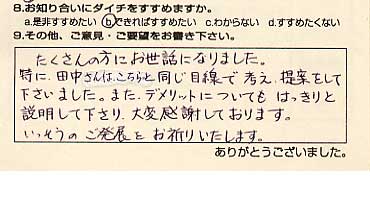 8.お知り合いにダイチをすすめますか。
a.是非すすめたい b.できればすすめたい c.わからない d.すすめたくない
9.その他、ご意見・ご要望をお書き下さい。
たくさんの方にお世話になりました。
特に、田中さんは、こちらと同じ目線で考え、提案をして
下さいました。また、デメリットについても はっきりと
説明して下さり、大変感謝しております。
いっそうの ご発展を お祈りいたします。
ありがとうございました。